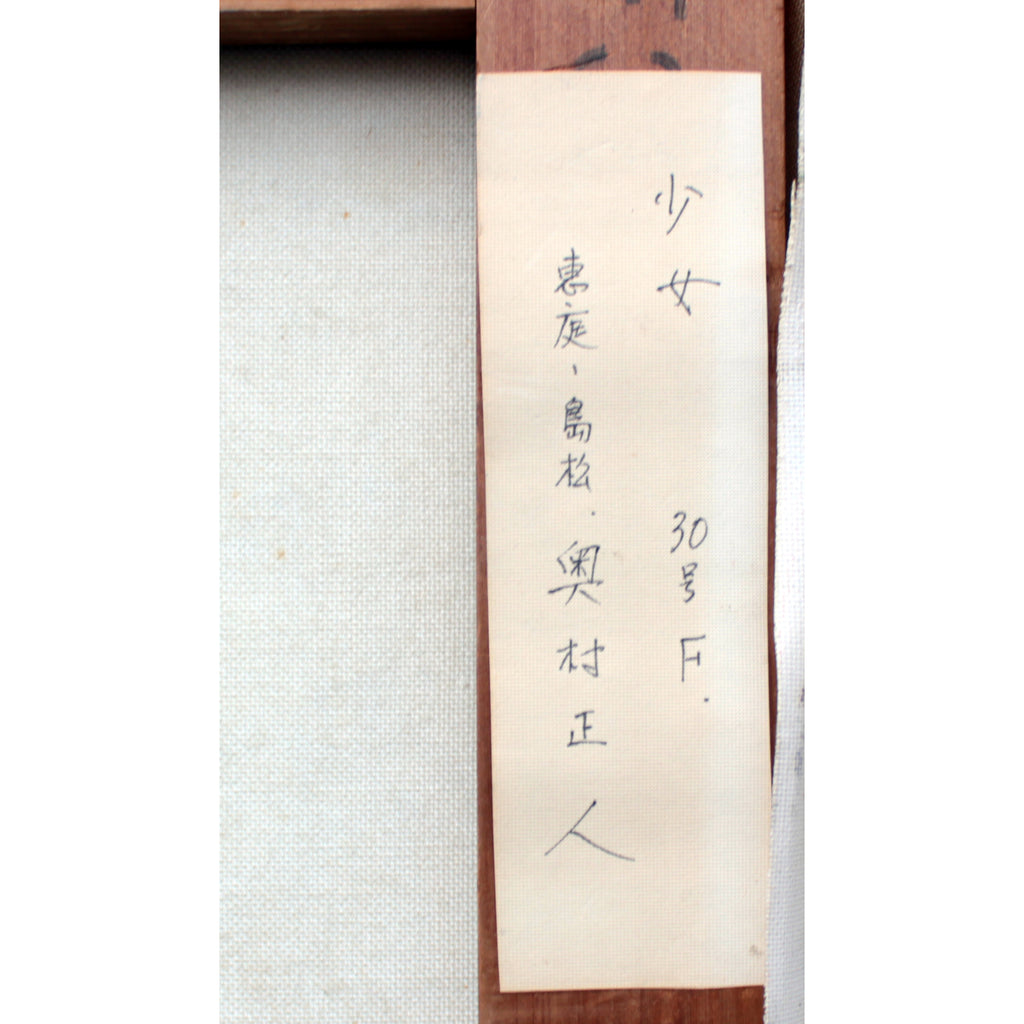 少女 30号F.
恵庭、島松.奥村正人